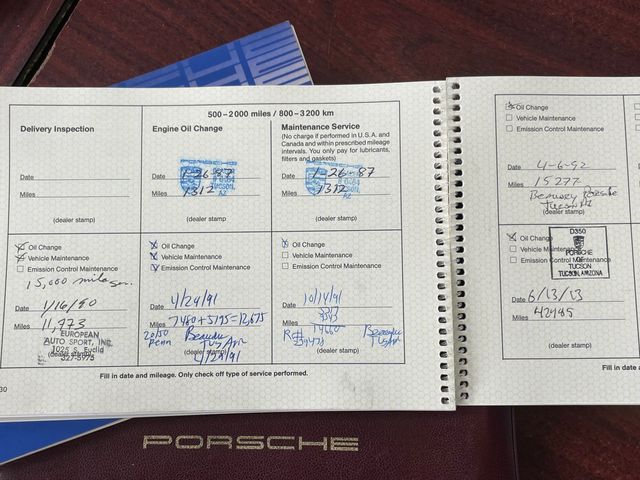 500–2000 miles / 800–3200 km
Delivery Inspection
Date
Miles
(dealer stamp)
Engine Oil Change
Date 1-26-87
Miles 1312
(dealer stamp)
Maintenance Service
(No charge if performed in U.S.A. and
Canada and within prescribed mileage
intervals. You only pay for lubricants,
filters and gaskets)
Date 1-26-87
Miles 1312
(dealer stamp)
Oil Change
Vehicle Maintenance
Emission Control Maintenance
15,000 mile
Date 1/16/90
Miles 11,973
EUROPEAN
AUTO SPORT, INC.
1025 S. Euclid
(dealer stamp)
327-5975
Oil Change
Vehicle Maintenance
Emission Control Maintenance
Date 4/29/91
Miles 7480+5195=12,675
20/50
Penn
(dealer stamp)
4/29/91
Oil Change
Vehicle Maintenance
Emission Control Maintenance
Date 10/14/91
Miles
(dealer stamp)
Fill in date and mileage. Only check off type of service performed.
30
Oil Change
Vehicle Maintenance
Emission Control Maintenance
Date 4-6-92
Miles 15277
Porsche
Tucson AZ
(dealer stamp)
Oil Change
Vehicle Maintenance
Emission Control
D350
PORSCHE
OF
TUCSON
TUCSON, ARIZONA
Date 6/13/13
Miles 42485
(dealer stamp)
Fill in date a
PORSCHE